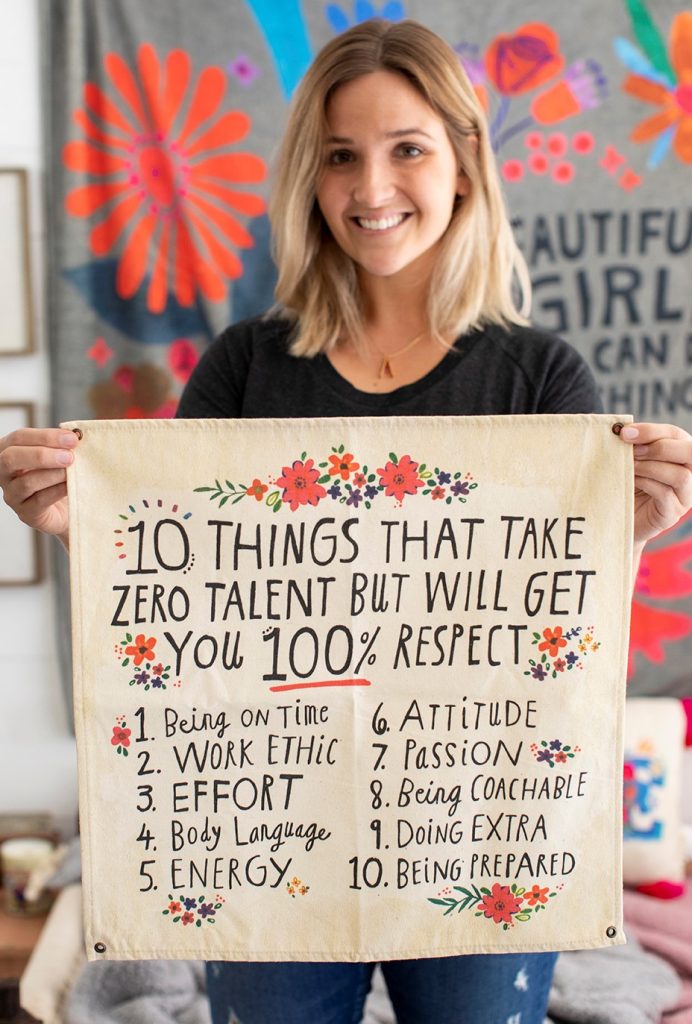 BEAUTIFUL
GIRL
CAN
10 THINGS THAT TAKE
ZERO TALENT BUT WILL GET
YOU 100% RESPECT
1. Being ON Time
2. WORK ETHIC
3. EFFORT
4. Body Language
5. ENERGY
6. ATTITUDE
7. PASSION
8. Being COACHABLE
9. DOING EXTRA
10. BEING PREPARED